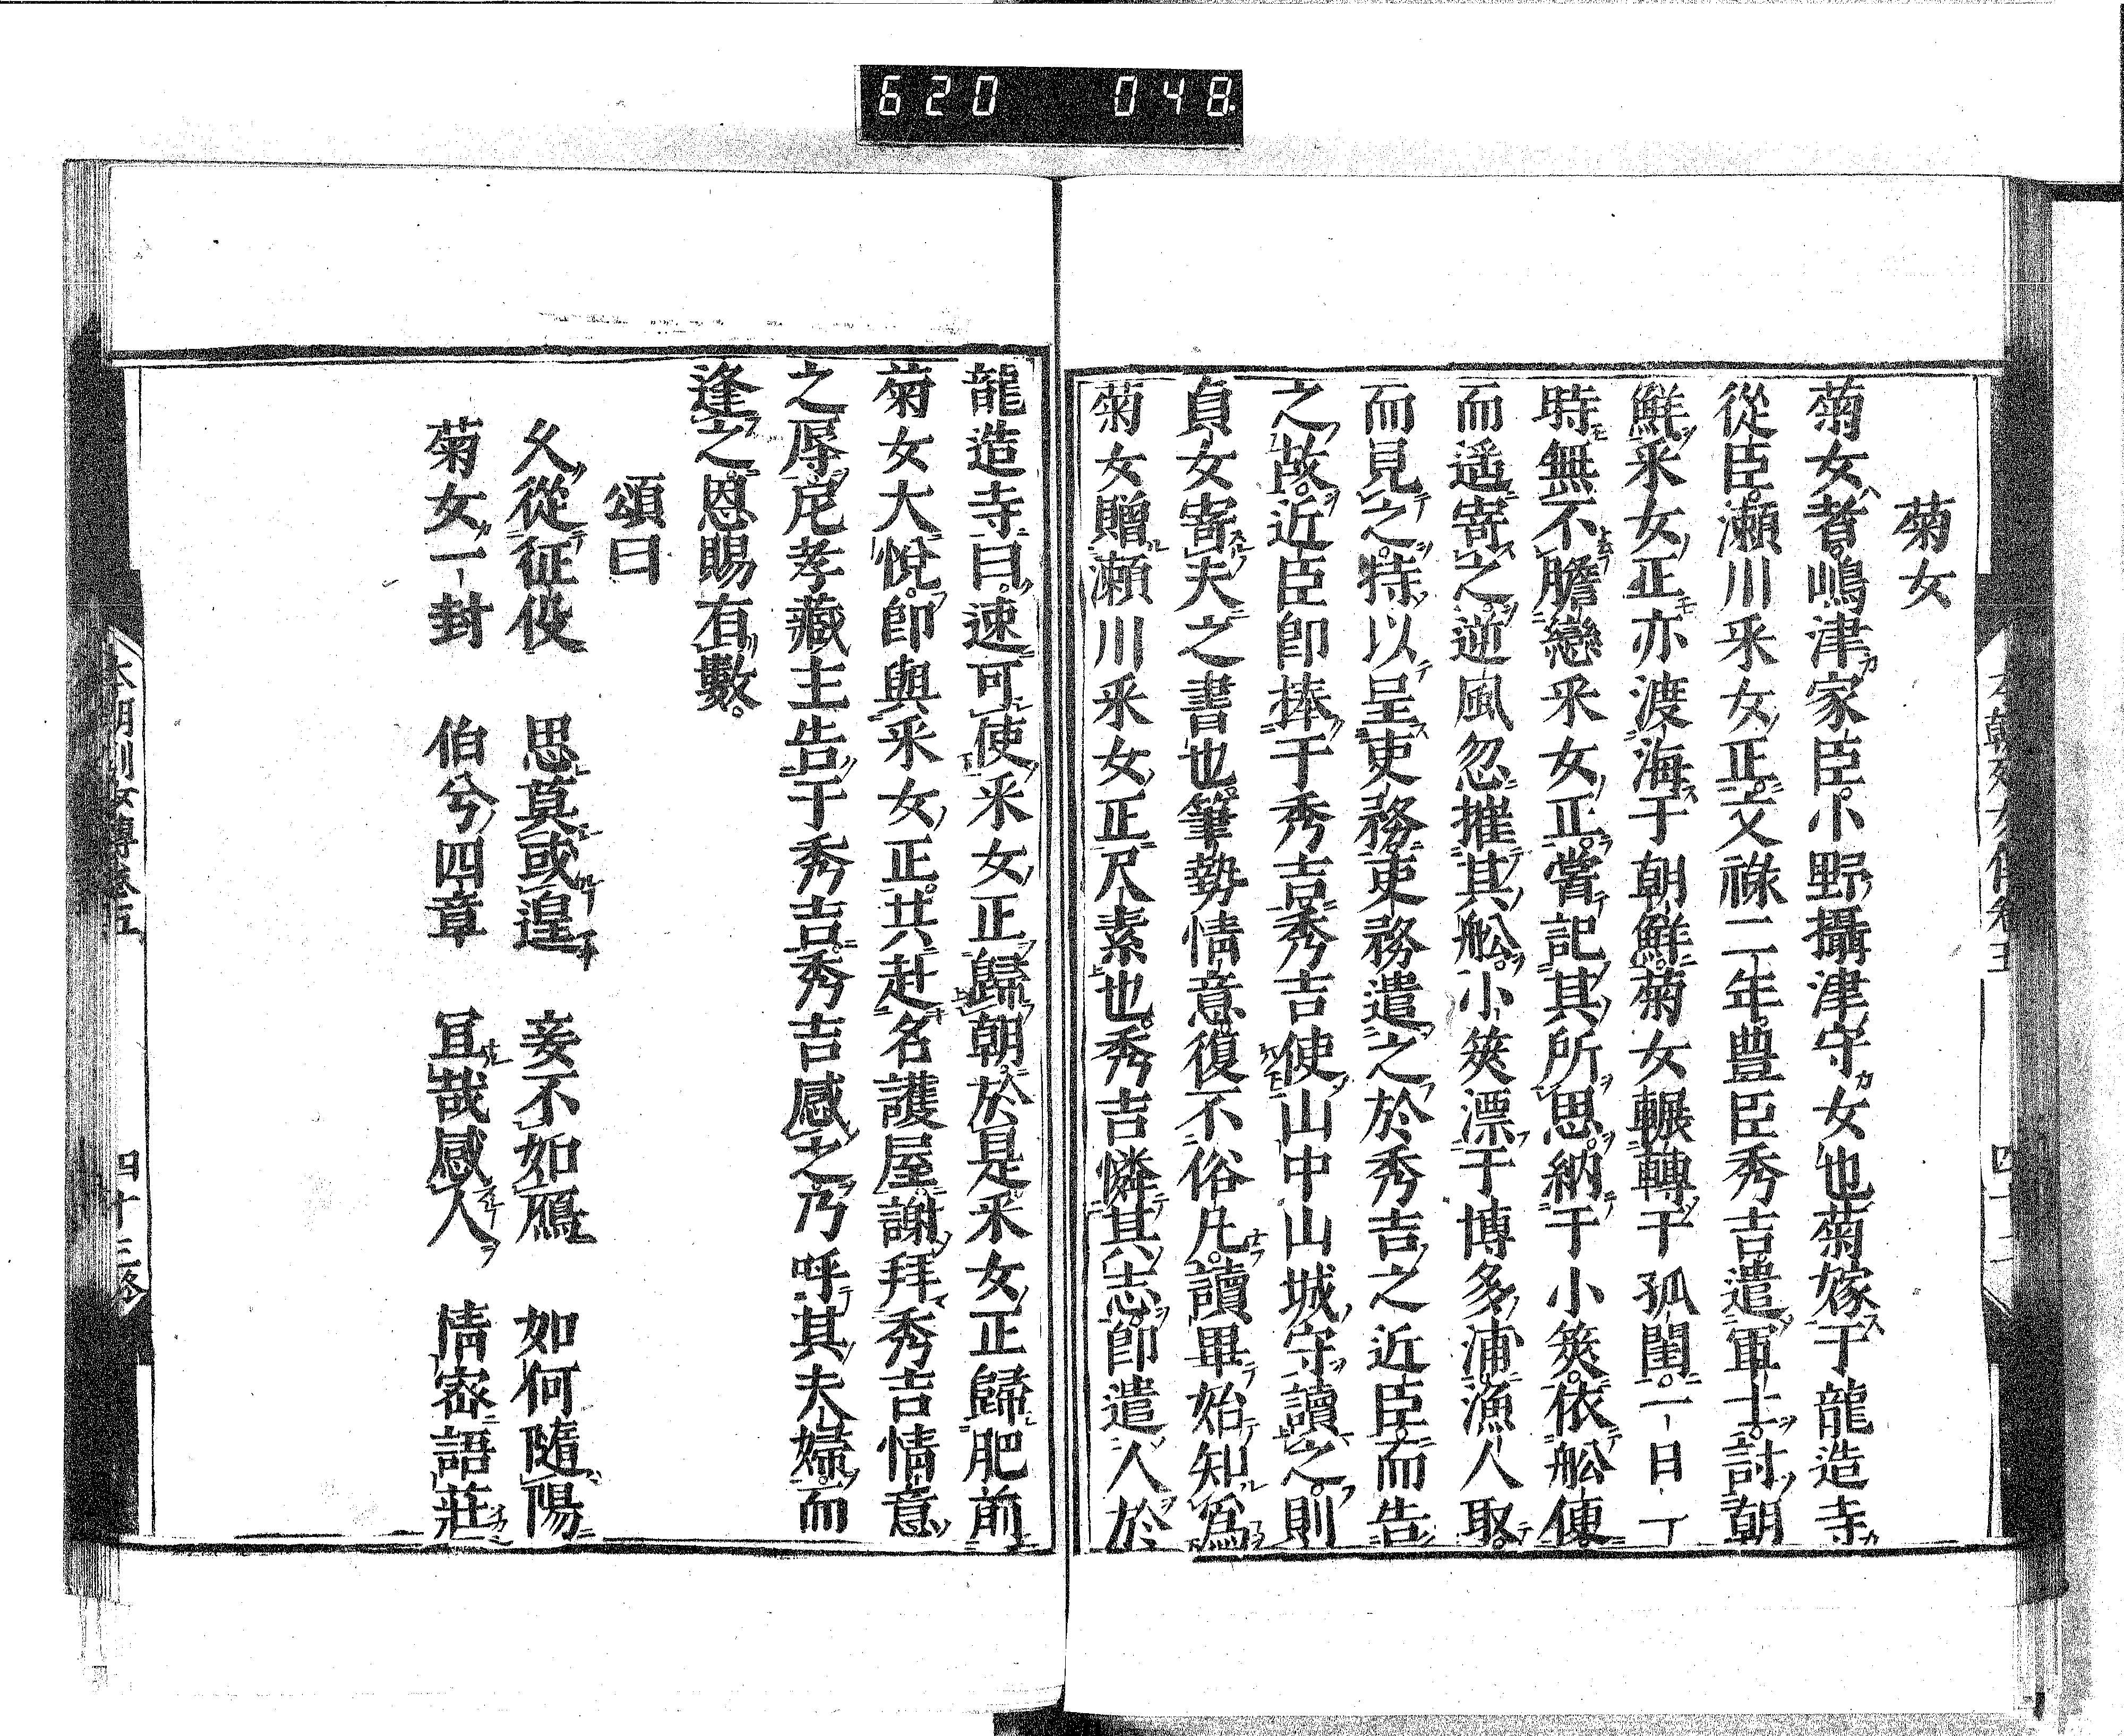 620 048
菊女
菊女者嶋津家臣小野攝津守女也菊嫁于龍造寺
從臣瀬川釆女正文祿二年豊臣秀吉遣軍士討朝
鮮釆女正亦渡海于朝鮮菊女輾轉于孤閨一日一
時無不膽戀釆女正嘗記其所思納于小筴依舩便
而遥寄之逆風忽摧其舩小筴漂于博多浦漁人取
而見之特以呈吏務吏務遣之於秀吉之近臣而告
之故近臣即捧于秀吉秀吉使山中山城守讀之則
貞女寄夫之書也筆勢情意復不俗凡讀畢始知爲
菊女贈瀬川釆女正尺素也秀吉憐其志即遣人於
龍造寺曰速可使釆女正歸朝於是釆女正歸肥前
菊女大悅即與釆女正共赴名護屋謝拜秀吉情意
之辱尼孝藏主告于秀吉秀吉感之乃呼其夫婦而
逢之恩賜有數
頌曰
久從征役 思莫或遑 妾不如鴈 如何隨陽
菊女一封 伯兮四章 冝哉感人 情密語莊
本朝列女傳卷五 四十三終